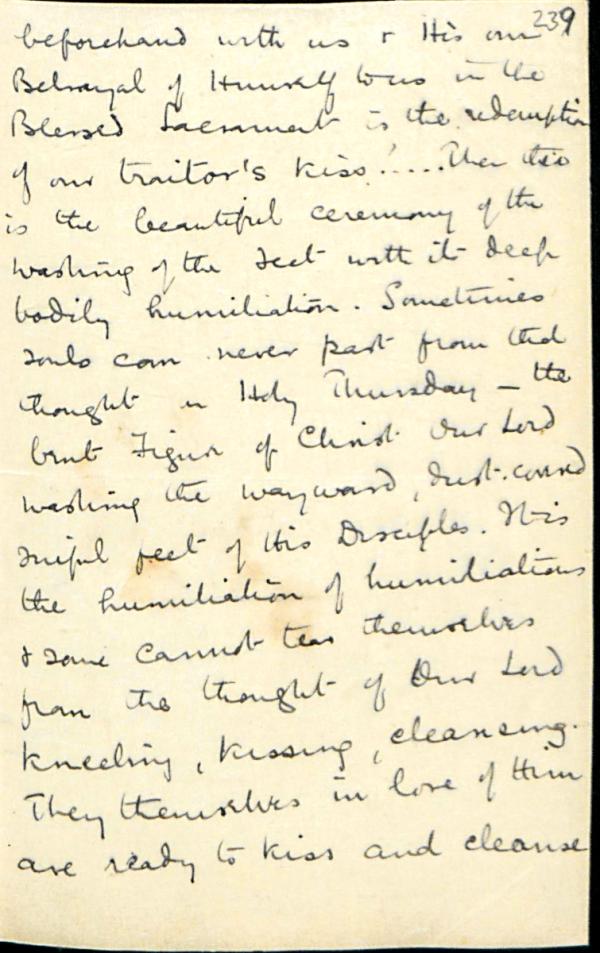 239
beforehand with us + His own
Betrayal of Himself to us in the
Blessed Sacrament is the redemption
of our traitor's kiss! .... Then there
is the beautiful ceremony of the
washing of the feet with its deep
bodily humiliation. Sometimes
souls can never part from that
thought on Holy Thursday – the
bent Figure of Christ Our Lord
washing the wayward, dust-covered
sinful feet of His Disciples. It is
the humiliation of humiliations
& some cannot tear themselves
from the thought of Our Lord
kneeling, kissing, cleansing.
They themselves in love of Him
are ready to kiss and cleanse